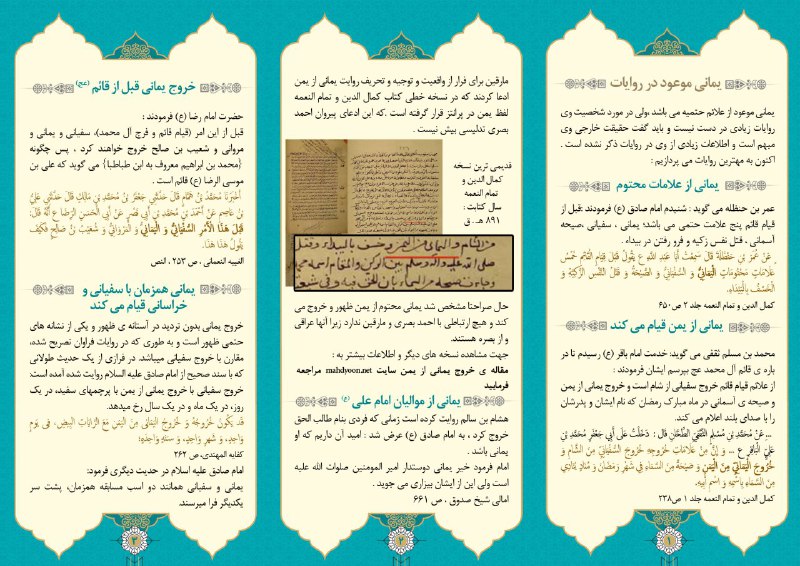 یمانی موعود در روایات
یمانی موعود از علائم حتمیه می باشد ،ولی در مورد شخصیت وی
روایات زیادی در دست نیست و باید گفت حقیقت خارجی وی
مبهم است و اطلاعات زیادی از وی در روایات ذکر نشده است .
اکنون به مهمترین روایات می پردازیم :
یمانی از علامات محتوم
عمر بن حنظله می گوید : شنیدم امام صادق (ع) فرمودند :قبل از
قیام قائم پنج علامت حتمی می باشد؛ یمانی ، سفیانی ،صیحه
آسمانی ، قتل نفس زکیه و فرو رفتن در بیداء .
عَنْ عُمَرَ بْنِ حَنْظَلَةَ قَالَ سَمِعْتُ أَبَا عَبْدِ اللَّهِ ع يَقُولُ قَبْلَ قِيَامِ الْقَائِمِ خَمْسُ
عَلَامَاتٍ مَحْتُومَاتٍ الْيَمَانِيُّ وَ السُّفْيَانِيُّ وَ الصَّيْحَةُ وَ قَتْلُ النَّفْسِ الزَّكِيَّةِ وَ
الْخَسْفُ بِالْبَيْدَاءِ.
کمال الدین و تمام النعمه جلد ۲ ص۶۵۰
یمانی از یمن قیام می کند
محمد بن مسلم ثقفی می گوید: خدمت امام باقر (ع) رسیدم تا در
باره ی قائم آل محمد عج بپرسم ایشان فرمودند :
از علائم قیام قائم خروج سفیانی از شام است و خروج یمانی از یمن
و صیحه ی آسمانی در ماه مبارک رمضان که نام ایشان و پدرشان
را با صدای بلند اعلام می کند.
...عَنْ مُحَمَّدِ بْنِ مُسْلِمٍ الثَّقَفِيِّ الطَّحَّانِ قَالَ : دَخَلْتُ عَلَى أَبِي جَعْفَرٍ مُحَمَّدِ بْنِ
عَلِيٍّ الْبَاقِرِ ع ... وَ إِنَّ مِنْ عَلَامَاتِ خُرُوجِهِ خُرُوجَ السُّفْيَانِيِّ مِنَ الشَّامِ وَ
خُرُوجَ الْيَمَانِيِّ مِنَ الْيَمَنِ وَ صَيْحَةً مِنَ السَّمَاءِ فِي شَهْرِ رَمَضَانَ وَ مُنَادٍ يُنَادِي
مِنَ السَّمَاءِ بِاسْمِهِ وَ اسْمِ أَبِيهِ.
کمال الدین و تمام النعمه جلد ۱ ص۳۳۸
۱
مارقین برای فرار از واقعیت و توجیه و تحریف روایت یمانی از یمن
ادعا کردند که در نسخه خطی کتاب کمال الدین و تمام النعمه
لفظ یمن در پرانتز قرار گرفته است .که این ادعای پیروان احمد
بصری تدلیسی بیش نیست .
قدیمی ترین نسخه
کمال الدین و
تمام النعمه
سال کتابت :
۸۹۱ هـ. ق
من الشام و الیمانی من الیمن و خسف بالبیداء و قتل
بین الرکن والمقام اسمه محمد
حال صراحتا مشخص شد یمانی محتوم از یمن ظهور و خروج می
کند و هیچ ارتباطی با احمد بصری و مارقین ندارد زیرا آنها عراقی
و از بصره هستند.
جهت مشاهده نسخه های دیگر و اطلاعات بیشتر به :
مقاله ی خروج یمانی از یمن سایت mahdyoon.net مراجعه
فرمایید
یمانی از موالیان امام علی (ع)
هشام بن سالم روایت کرده است زمانی که فردی بنام طالب الحق
خروج کرد ، به امام صادق (ع) عرض شد : امید آن داریم که او
یمانی باشد .
امام فرمود خیر یمانی دوستدار امیر المومنین صلوات الله علیه
است ولی این از ایشان بیزاری می جوید .
امالی شیخ صدوق ، ص ۶۶۱
۲
خروج یمانی قبل از قائم (عج)
حضرت امام رضا (ع) فرمودند :
قبل از این امر (قیام قائم و فرج آل محمد)، سفیانی و یمانی و
مروانی و شعیب بن صالح خروج خواهند کرد ، پس چگونه
{محمد بن ابراهیم معروف به ابن طباطبا} می گوید که علی بن
موسی الرضا (ع) قائم است .
أَخْبَرَنَا مُحَمَّدُ بْنُ هَمَّامٍ قَالَ حَدَّثَنِي جَعْفَرُ بْنُ مُحَمَّدِ بْنِ مَالِكٍ قَالَ حَدَّثَنِي عَلِيُّ
بْنُ عَاصِمٍ عَنْ أَحْمَدَ بْنِ مُحَمَّدِ بْنِ أَبِي نَصْرٍ عَنْ أَبِي الْحَسَنِ الرِّضَا ع أَنَّهُ قَالَ:
قَبْلَ هَذَا الْأَمْرِ السُّفْيَانِيُّ وَ الْيَمَانِيُّ وَ الْمَرْوَانِيُّ وَ شُعَيْبُ بْنُ صَالِحٍ فَكَيْفَ
يَقُولُ هَذَا هَذَا.
الغیبه النعمانی ، ص ۲۵۳ ، النص
یمانی همزمان با سفیانی و
خراسانی قیام می کند
خروج یمانی بدون تردید در آستانه ی ظهور و یکی از نشانه های
حتمی ظهور است و به طوری که در روایات فراوان تصریح شده،
مقارن با خروج سفیانی میباشد. در فرازی از یک حدیث طولانی
که با سند صحیح از امام صادق علیه السلام روایت شده آمده است:
خروج سفیانی با خروج یمانی از یمن با پرچمهای سفید، در یک
روز، در یک ماه و در یک سال رخ میدهد.
قَد يَكُونُ خُرُوجُهُ وَ خُرُوجُ اليَمَانِی مِنَ اليَمَنِ مَعَ الرَّايَاتِ البِيضِ، فِي يَومٍ
وَاحِدٍ، وَ شَهرٍ وَاحِدٍ، وَ سَنَةٍ وَاحِدَةٍ؛
کفایه المهتدی، ص ۲۶۲
امام صادق علیه السلام در حدیث دیگری فرمود:
یمانی و سفیانی همانند دو اسب مسابقه همزمان، پشت سر
یکدیگر فرا میرسند.
۳